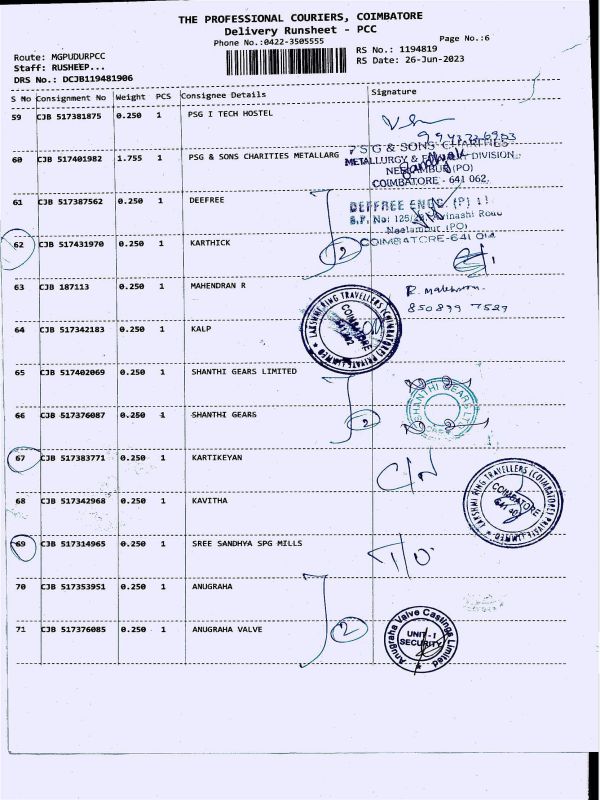 THE PROFESSIONAL COURIERS, COIMBATORE
Delivery Runsheet - PCC
Phone No.:0422-3505555
Page No.:6
Route: MGPUDURPCC
Staff: RUSHEEP...
DRS No.: DCJB119481906
RS No.: 1194819
RS Date: 26-Jun-2023
S No Consignment No Weight PCS Consignee Details Signature
59 CJB 517381875 0.250 1 PSG I TECH HOSTEL
60 CJB 517401982 1.755 1 PSG & SONS CHARITIES METALLARG
PSG & SONS CHARITIES
METALLURGY & DIVISION
NEELAMBUR (PO)
COIMBATORE - 641 062
61 CJB 517387562 0.250 1 DEEFREE
DEFFREE ENGG. (P)
S.F. No: 125/ Avinashi Road
Neelambur (PO)
COIMBATORE-641 014
62 CJB 517431970 0.250 1 KARTHICK
2
63 CJB 187113 0.250 1 MAHENDRAN R
850899 7529
64 CJB 517342183 0.250 1 KALP
LAKSHMI RING TRAVELLERS (COIMBATORE) PRIVATE LIMITED
COIMBATORE
65 CJB 517402069 0.250 1 SHANTHI GEARS LIMITED
66 CJB 517376087 0.250 1 SHANTHI GEARS
2
SHANTHI GEARS LTD
67 CJB 517383771 0.250 1 KARTIKEYAN
C/N
68 CJB 517342968 0.250 1 KAVITHA
LAKSHMI RING TRAVELLERS (COIMBATORE) PRIVATE LIMITED
COIMBATORE
69 CJB 517314965 0.250 1 SREE SANDHYA SPG MILLS
T/O
70 CJB 517353951 0.250 1 ANUGRAHA
71 CJB 517376085 0.250 1 ANUGRAHA VALVE
2
Anugraha Valve Castings Limited
UNIT-1
SECURITY